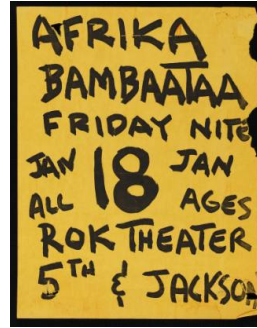 AFRIKA
BAMBAATAA
FRIDAY NITE
JAN 18 JAN
ALL AGES
ROK THEATER
5TH & JACKSON